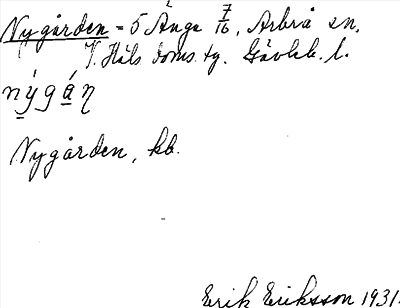 Nygården - 5 Änga 7/16, Arbrå sn,
V. Häls. doms. tg. Gävleb. l.
nýgáŋ
Nygården, kb.
Erik Eriksson 1931.